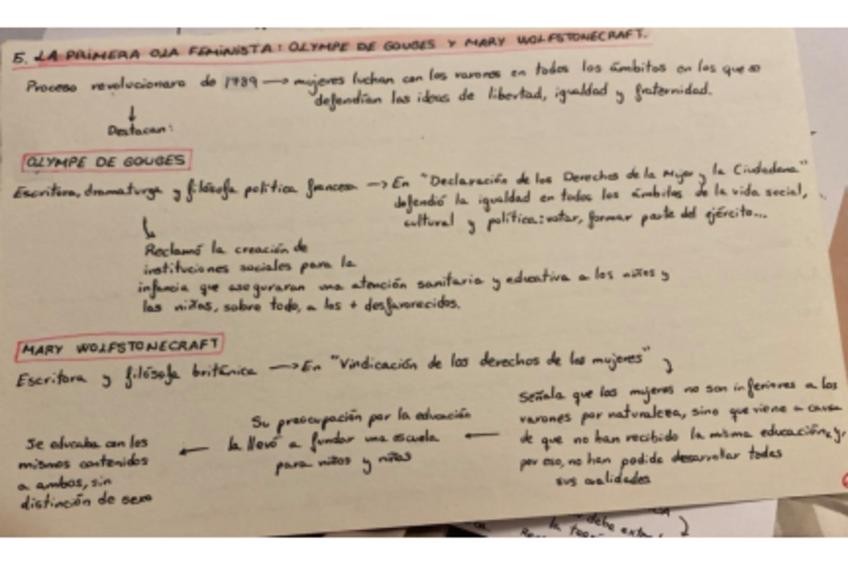 5. LA PRIMERA OLA FEMINISTA: OLYMPE DE GOUGES Y MARY WOLFSTONECRAFT.
Proceso revolucionaro de 1789 → mujeres luchan con los varones en todos los ámbitos en los que se
defendían las ideas de libertad, igualdad y fraternidad.
↓
Destacan:
OLYMPE DE GOUGES
Escritora, dramaturga y filósofa política francesa → En "Declaración de los Derechos de la Mujer y la Ciudadana"
defendió la igualdad en todos los ámbitos de la vida social,
cultural y política: votar, formar parte del ejército...
↳
Reclamó la creación de
instituciones sociales para la
infancia que aseguraran una atención sanitaria y educativa a los niños y
las niñas, sobre todo, a los + desfavorecidos.
MARY WOLFSTONECRAFT
Escritora y filósofa británica → En "Vindicación de los derechos de las mujeres"
Señala que las mujeres no son inferiores a los
varones por naturaleza, sino que viene a causa
de que no han recibido la misma educación, y,
por eso, no han podido desarrollar todas
sus cualidades
←
Su preocupación por la educación
la llevó a fundar una escuela
para niños y niñas
←
Se educaba con los
mismos contenidos
a ambos, sin
distinción de sexo
debe